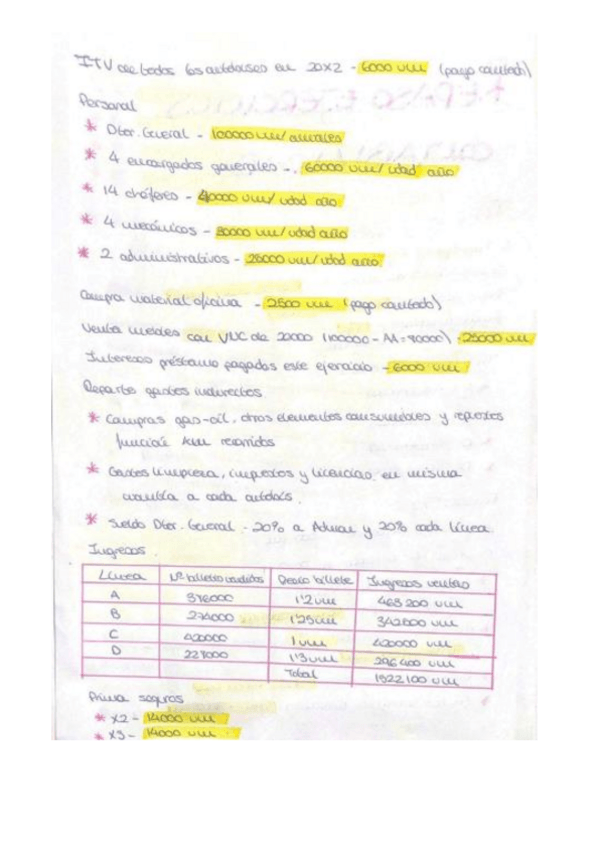 ITV de todos los autobuses en 20X2 - 6000 um (pago contado)
Personal
* Dtor. General - 100000 um/ anuales
* 4 encargados generales - 60000 um/ udad año
* 14 chóferes - 40000 um/ udad año
* 4 mecánicos - 30000 um/ udad año
* 2 administrativos - 25000 um/ udad año
Compra material oficina - 2500 um (pago contado)
Venta muebles con VNC de 20000 (100000 - AA = 80000) - 25000 um
Intereses préstamo pagados este ejercicio - 6000 um
Reparto gastos indirectos
* Compras gas-oil, otros elementos consumibles y repuestos
función km recorridos
* Gastos limpieza, impuestos y licencias en misma
cuantía a cada autobús.
* Sueldo Dtor. General - 20% a Admon y 20% cada línea
Ingresos
Línea Nº billetes vendidos Precio billete Ingresos ventas
A 376000 1'2 um 468 200 um
B 274000 1'25 um 342500 um
C 420000 1 um 420000 um
D 228000 1'3 um 296 400 um
Total 1522 100 um
Prima seguros
* X2 - 14000 um
* X3 - 14000 um